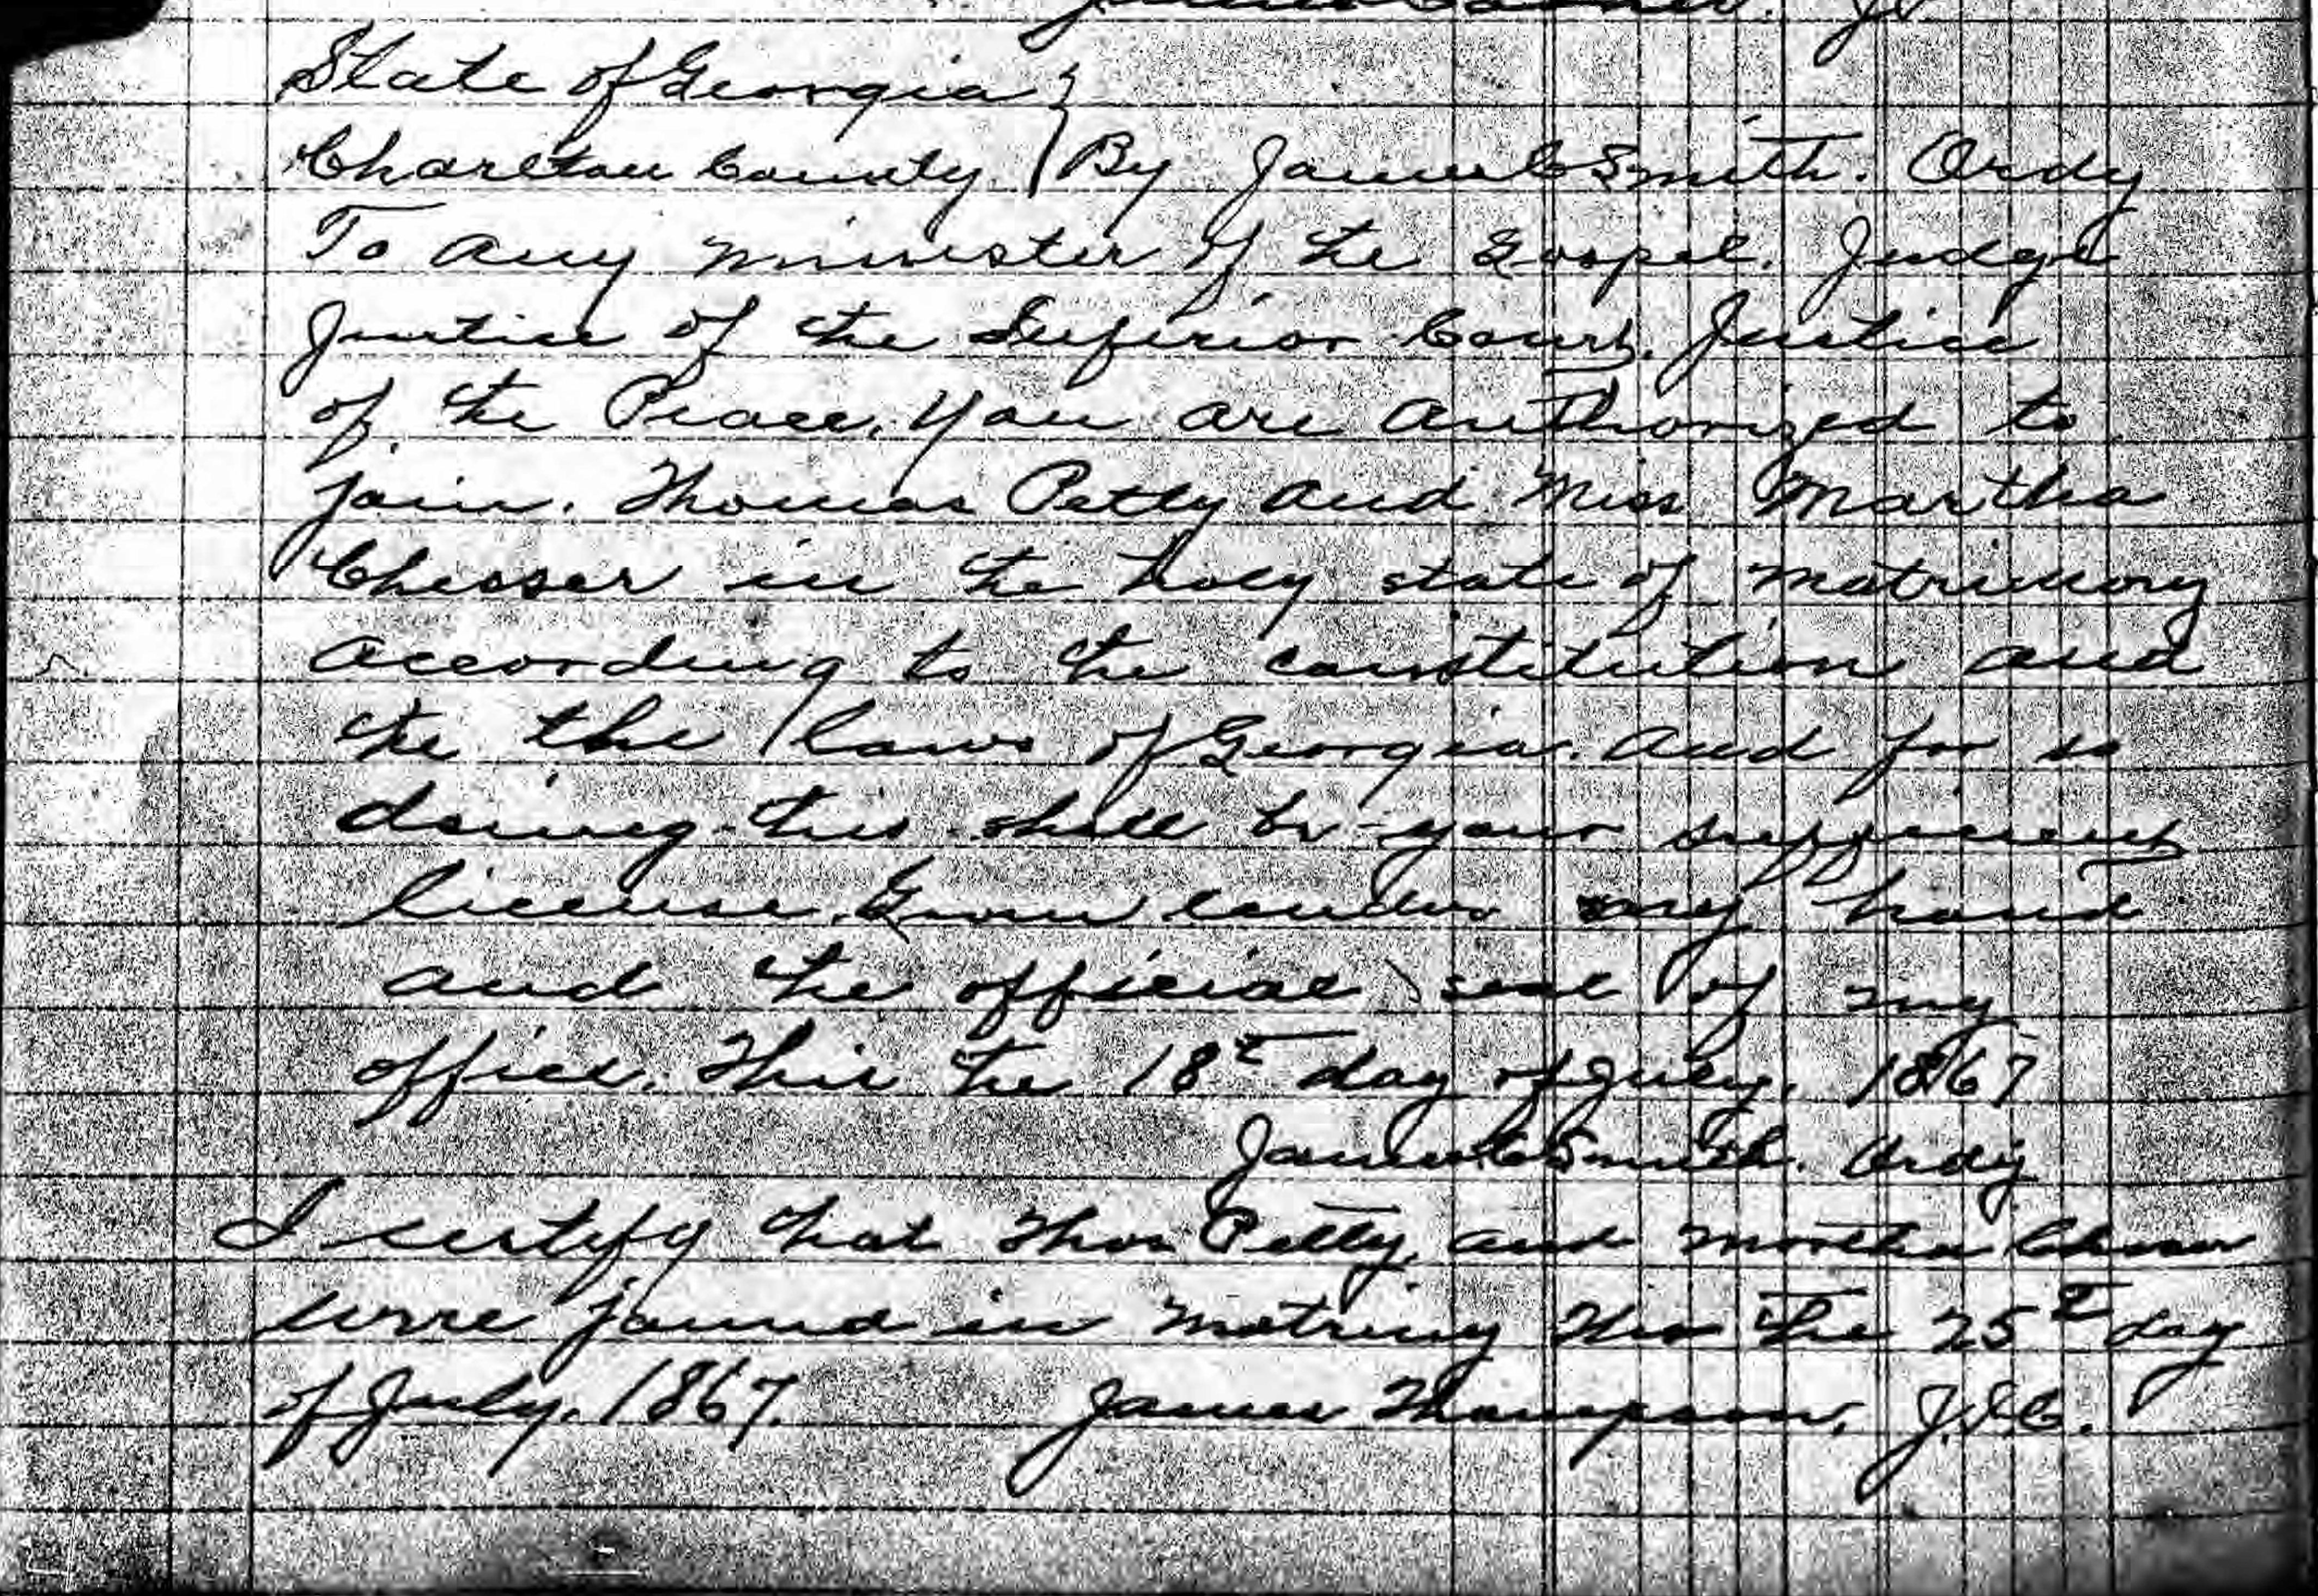 State of Georgia }
Charlton County } By James C Smith. Ordy
To any minister of the Gospel. Judge
Justice of the Superior Court. Justice
of the Peace. You are authorized to
join. Thomas Petty and Miss Martha
Chesser in the holy state of matrimony
according to the constitution and
the the laws of Georgia. And for so
doing this shall be your sufficient
license. Given under my hand
and the official seal of my
office. This the 18t day of July. 1867
James C Smith. Ordy
I certify that Thos Petty, and Martha Chesser
were joined in matrimy this the 25t day
of July. 1867. James Thompson, J.I.C.